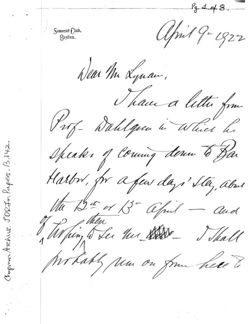 Pg 1 of 3.
Somerset Club,
Boston.
April 9 - 1922
Dear Mr Lynam,
I have a letter from
Prof - Dahlgren in which he
speaks of coming down to Bar
Harbor, for a few days' stay, about
the 12th or 13th April — and
of hoping then to see me — I shall
probably run on from here to
Chapman Archive.